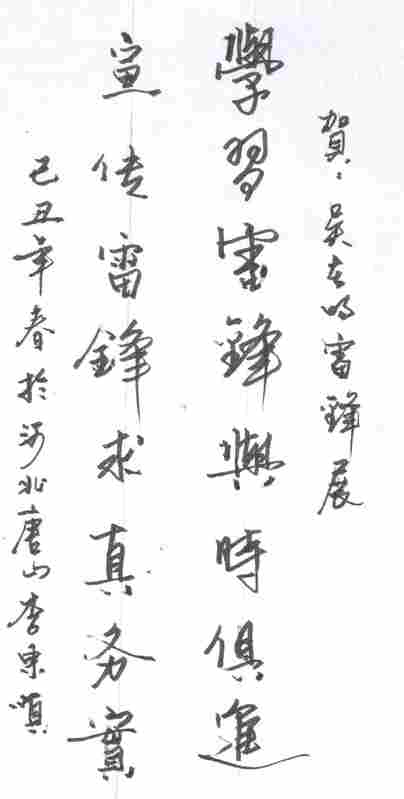 賀：吴在鸣雷鋒展
學習雷鋒與時俱進
宣传雷鋒求真务實
己丑年春於河北唐山李東順